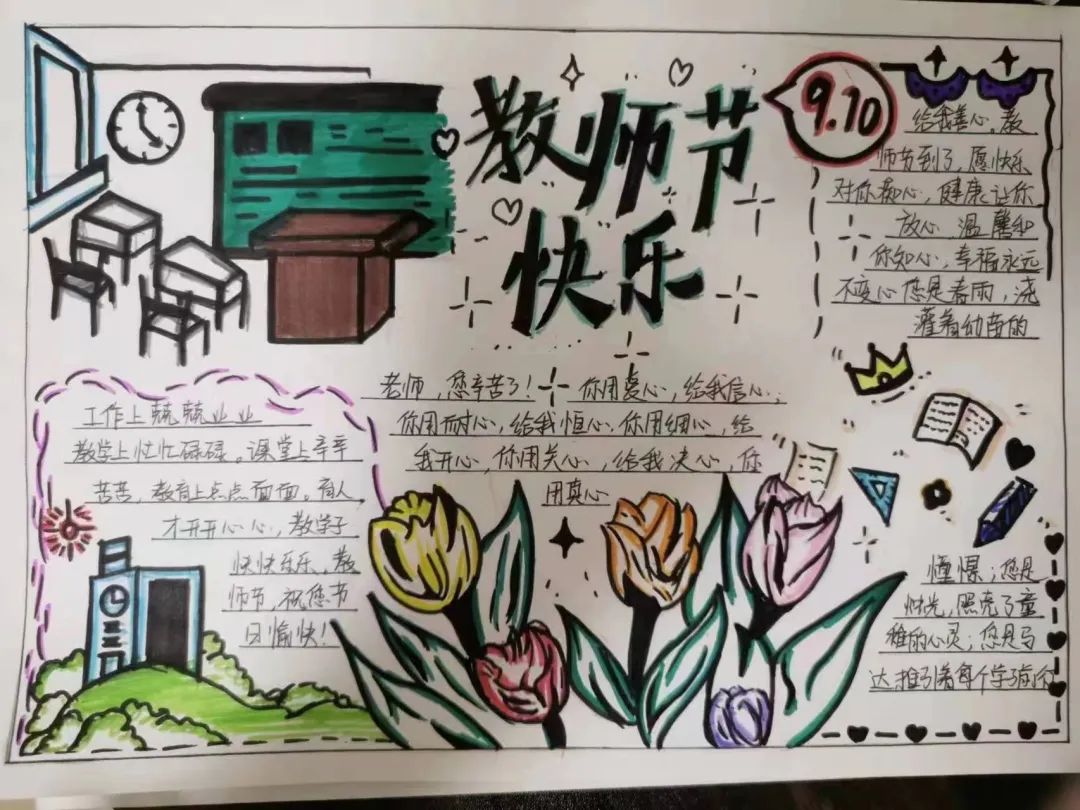 教师节
快乐
9.10
给我善心。教
师节到了,愿快乐
对你痴心,健康让你
放心,温馨和
你知心,幸福永远
不变心您是春雨,浇
灌着幼苗的
老师,您辛苦了!你用爱心,给我信心,
你用耐心,给我恒心,你用细心,给
我开心,你用关心,给我决心,你
用真心
工作上兢兢业业
教学上忙忙碌碌。课堂上辛辛
苦苦,教育上点点面面。育人
才开开心心,教学子
快快乐乐,教
师节,祝您节
日愉快!
憧憬;您是
烛光,照亮了童
稚的心灵;您是马
达推引着每个学